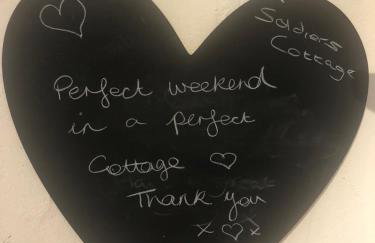 Soldiers
Cottage
Perfect weekend
in a perfect
Cottage ♡
Thank you
x ♡ x